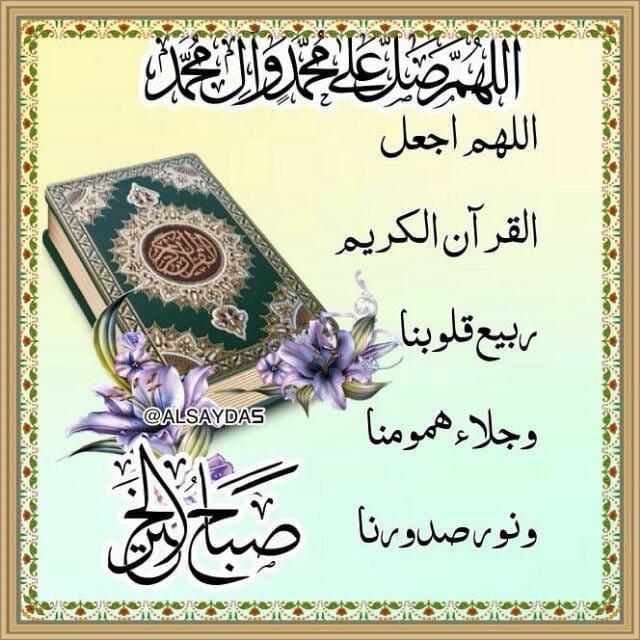 اللهم صل على محمد وآل محمد
اللهم اجعل
القرآن الكريم
ربيع قلوبنا
وجلاء همومنا
ونور صدورنا
القرآن الكريم
@ALSAYDAS
صباح الخير